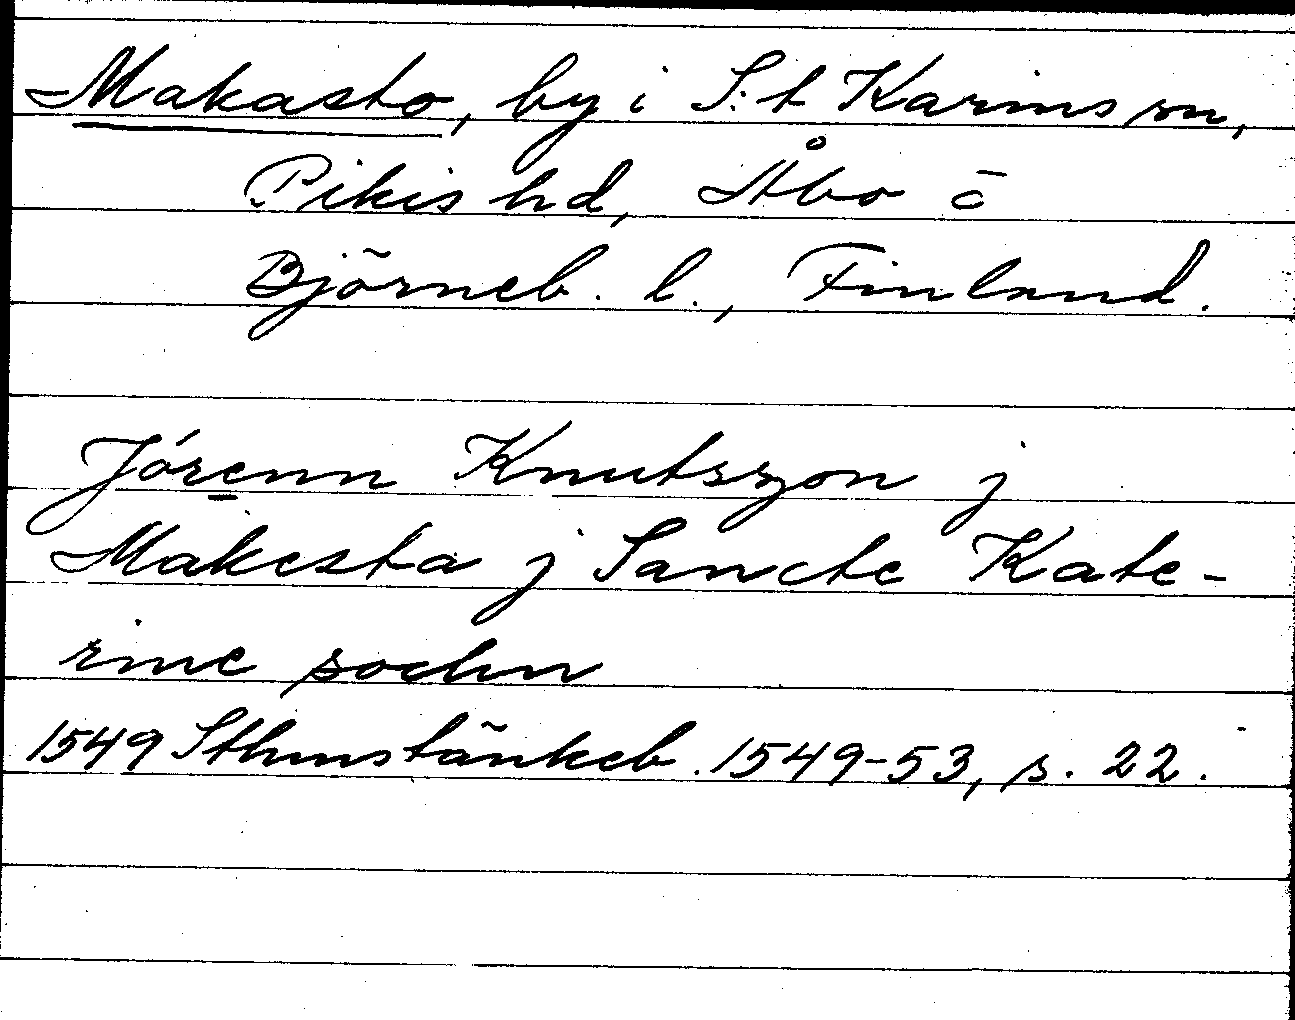 Makasto, by i S:t Karins sn,
Pikis hd, Åbo o
Björneb. l., Finland.
Jórenn Knutszon j
Makesta j Sancte Kate-
rine sochn
1549 Sthmstänkeb. 1549-53, s. 22.